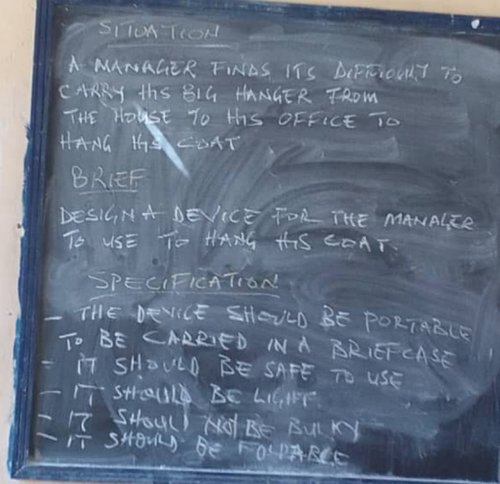 SITUATION
A MANAGER FINDS ITS DIFFICULT TO
CARRY HIS BIG HANGER FROM
THE HOUSE TO HIS OFFICE TO
HANG HIS COAT
BRIEF
DESIGN A DEVICE FOR THE MANAGER
TO USE TO HANG HIS COAT.
SPECIFICATION
- THE DEVICE SHOULD BE PORTABLE
TO BE CARRIED IN A BRIEFCASE
- IT SHOULD BE SAFE TO USE
- IT SHOULD BE LIGHT
- IT SHOULD NOT BE BULKY
- IT SHOULD BE FOLDABLE